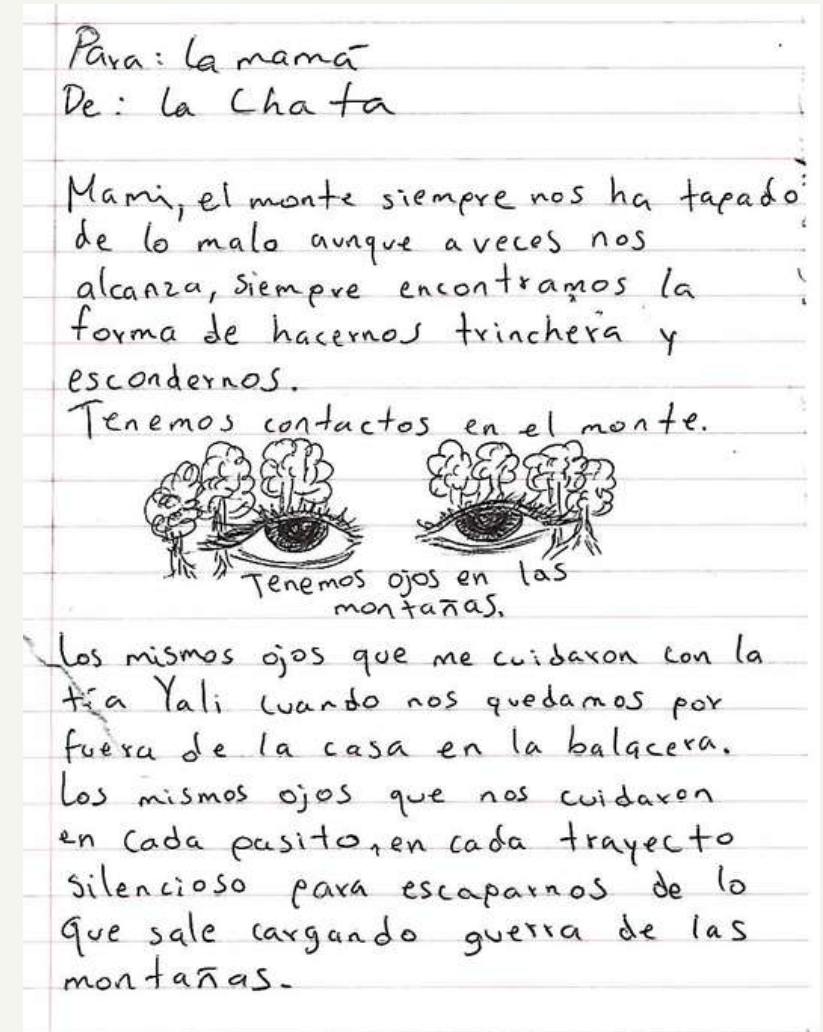 Para: la mamá
De: la Chata
Mami, el monte siempre nos ha tapado
de lo malo aunque a veces nos
alcanza, siempre encontramos la
forma de hacernos trinchera y
escondernos.
Tenemos contactos en el monte.
Tenemos ojos en las
montañas.
Los mismos ojos que me cuidaron con la
tía Yali cuando nos quedamos por
fuera de la casa en la balacera.
Los mismos ojos que nos cuidaron
en cada pasito, en cada trayecto
silencioso para escaparnos de lo
que sale cargando guerra de las
montañas.